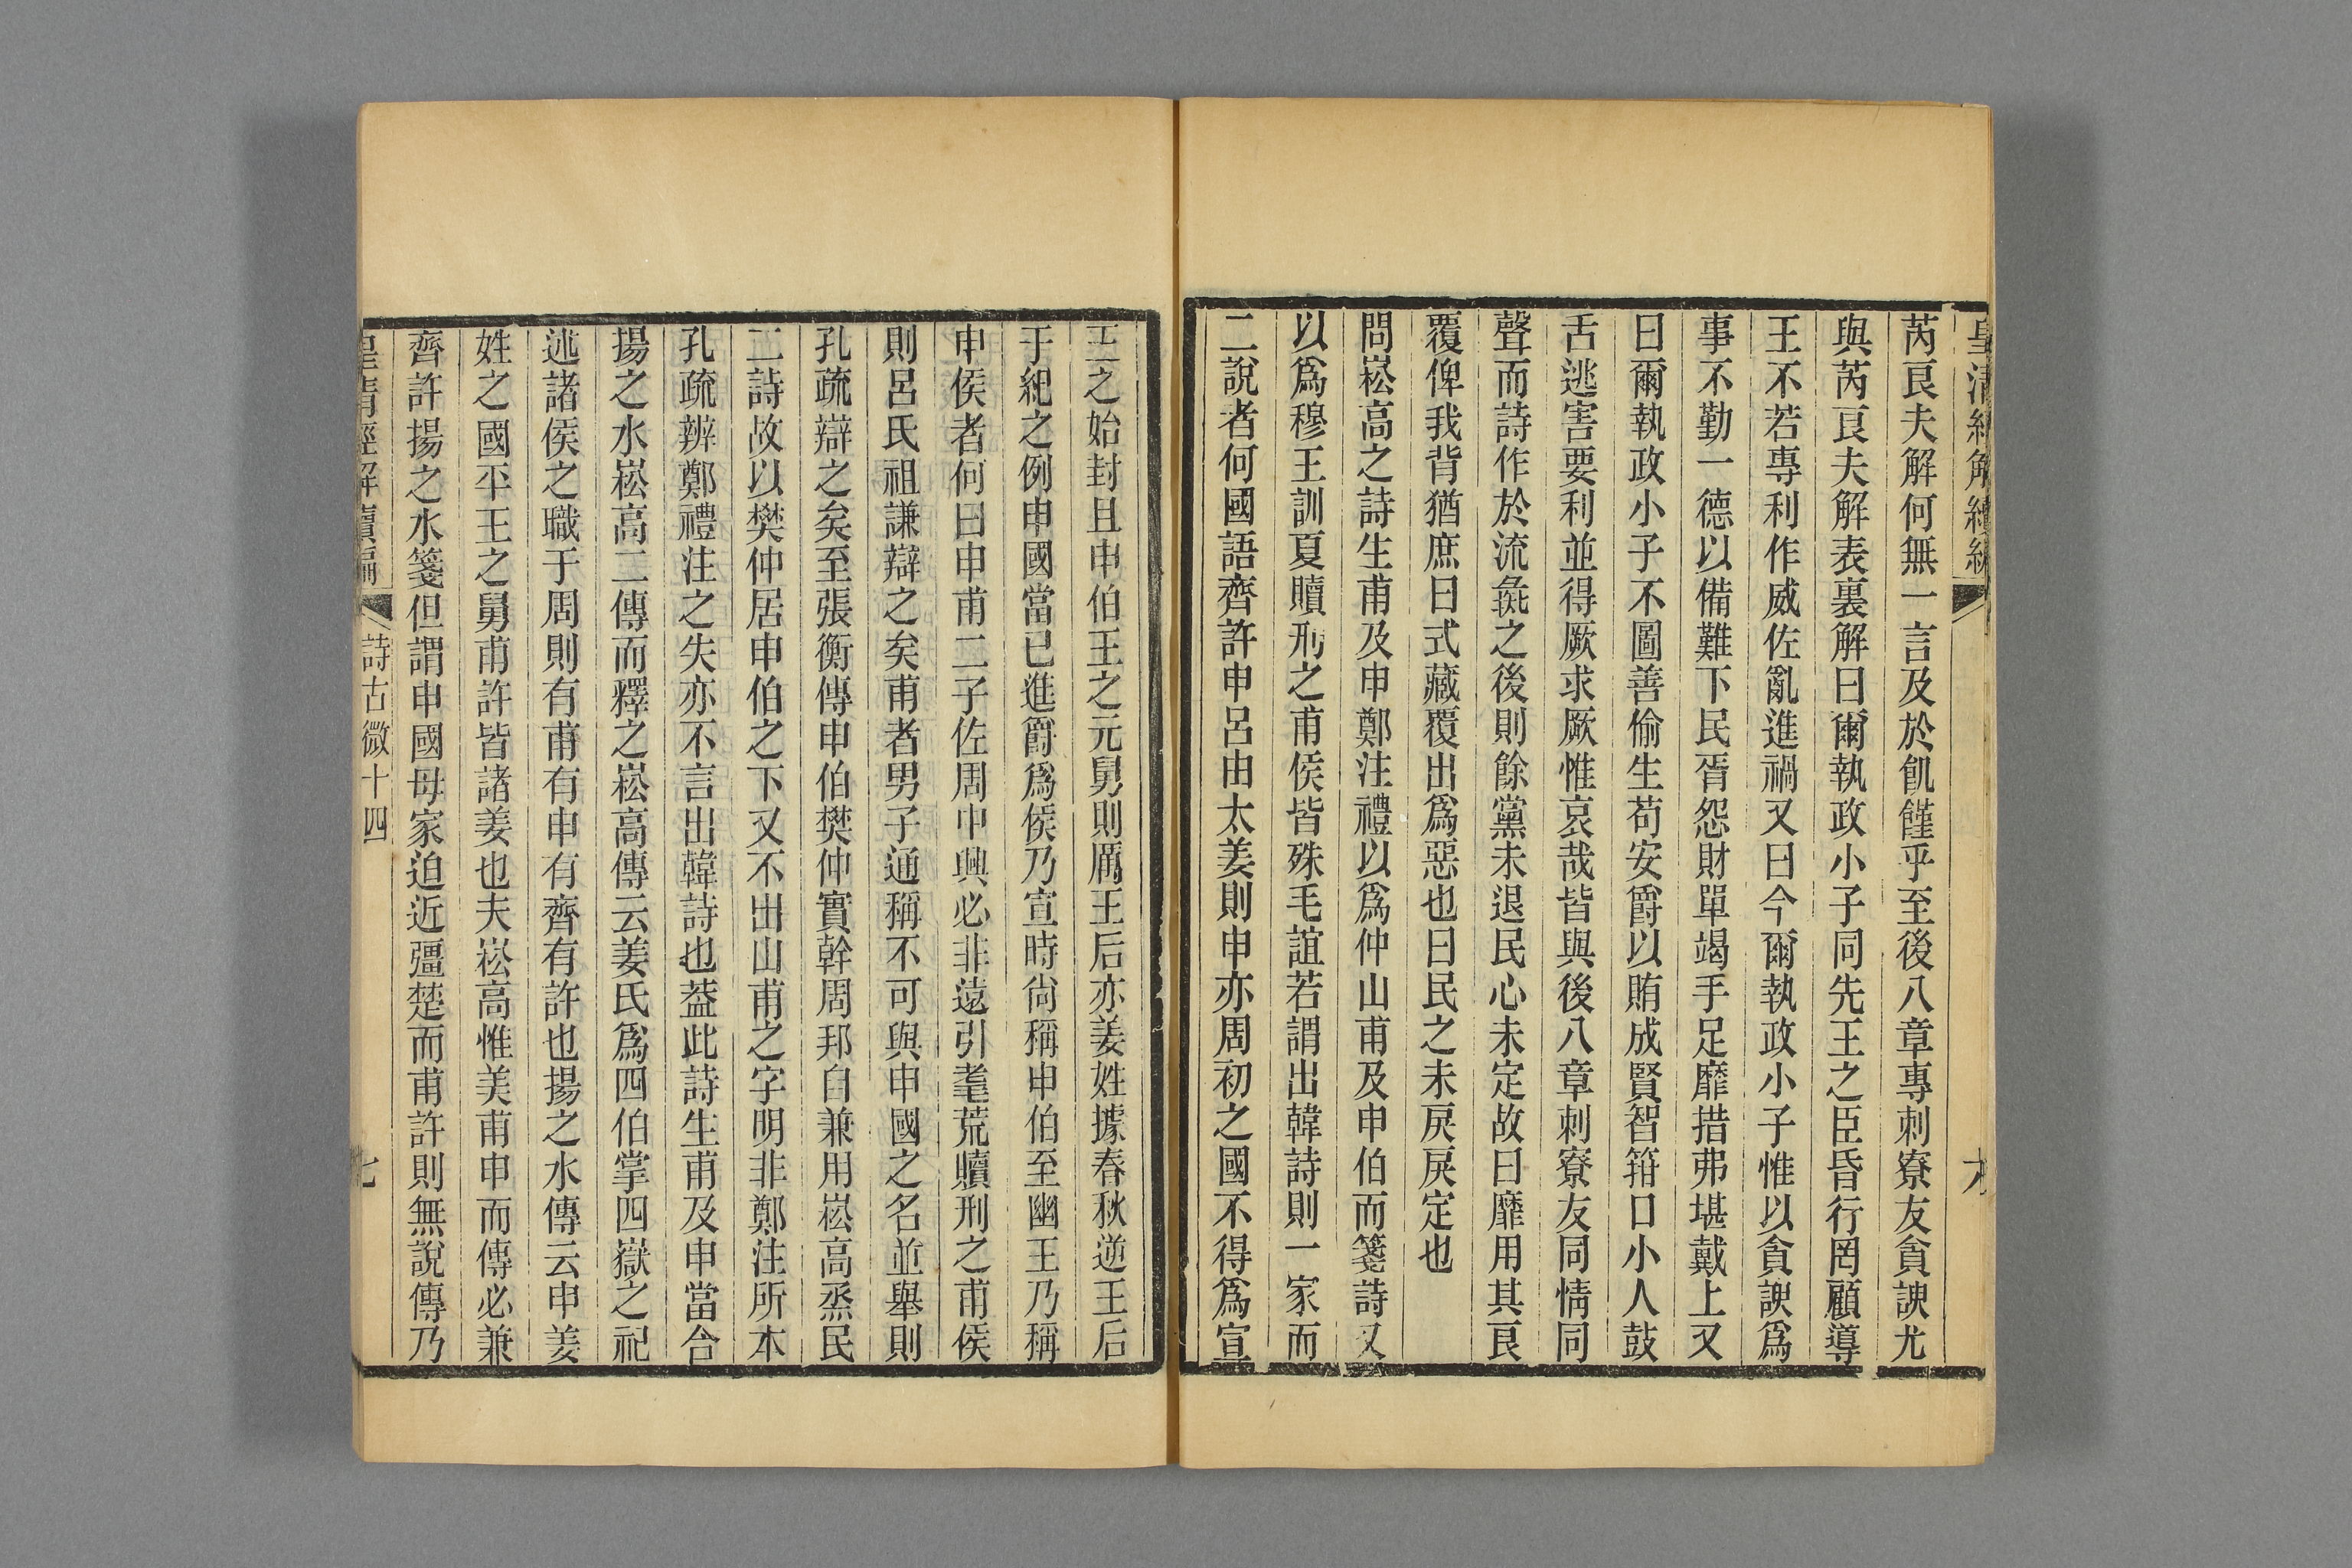 皇清經解續編
六
芮良夫解何無一言及於飢饉乎至後八章專刺寮友貪諛尤
與芮良夫解表裏解曰爾執政小子同先王之臣昏行罔顧導
王不若專利作威佐亂進禍又曰今爾執政小子惟以貪諛爲
事不勤一德以備難下民胥怨財單竭手足靡措弗堪戴上又
曰爾執政小子不圖善偷生苟安爵以賄成賢智箝口小人鼓
舌逃害要利並得厥求厥惟哀哉皆與後八章刺寮友同情同
聲而詩作於流彘之後則餘黨未退民心未定故曰靡用其良
覆俾我背猶庶曰式藏覆出爲惡也曰民之未戾戾定也
問崧高之詩生甫及申鄭注禮以爲仲山甫及申伯而箋詩又
以爲穆王訓夏贖刑之甫侯皆殊毛誼若謂出韓詩則一家而
二說者何國語齊許申呂由太姜則申亦周初之國不得爲宣
王之始封且申伯王之元舅則厲王后亦姜姓據春秋逆王后
于紀之例申國當已進爵爲侯乃宣時尙稱申伯至幽王乃稱
申侯者何曰申甫二子佐周中興必非遠引耄荒贖刑之甫侯
則呂氏祖謙辯之矣甫者男子通稱不可與申國之名並舉則
孔疏辯之矣至張衡傳申伯樊仲實幹周邦自兼用崧高烝民
二詩故以樊仲居申伯之下又不出山甫之字明非鄭注所本
孔疏辨鄭禮注之失亦不言出韓詩也葢此詩生甫及申當合
揚之水崧高二傳而釋之崧高傳云姜氏爲四伯掌四嶽之祀
述諸侯之職于周則有甫有申有齊有許也揚之水傳云申姜
姓之國平王之舅甫許皆諸姜也夫崧高惟美甫申而傳必兼
齊許揚之水箋但謂申國母家迫近彊楚而甫許則無說傳乃
皇清經解續編
詩古微十四
七